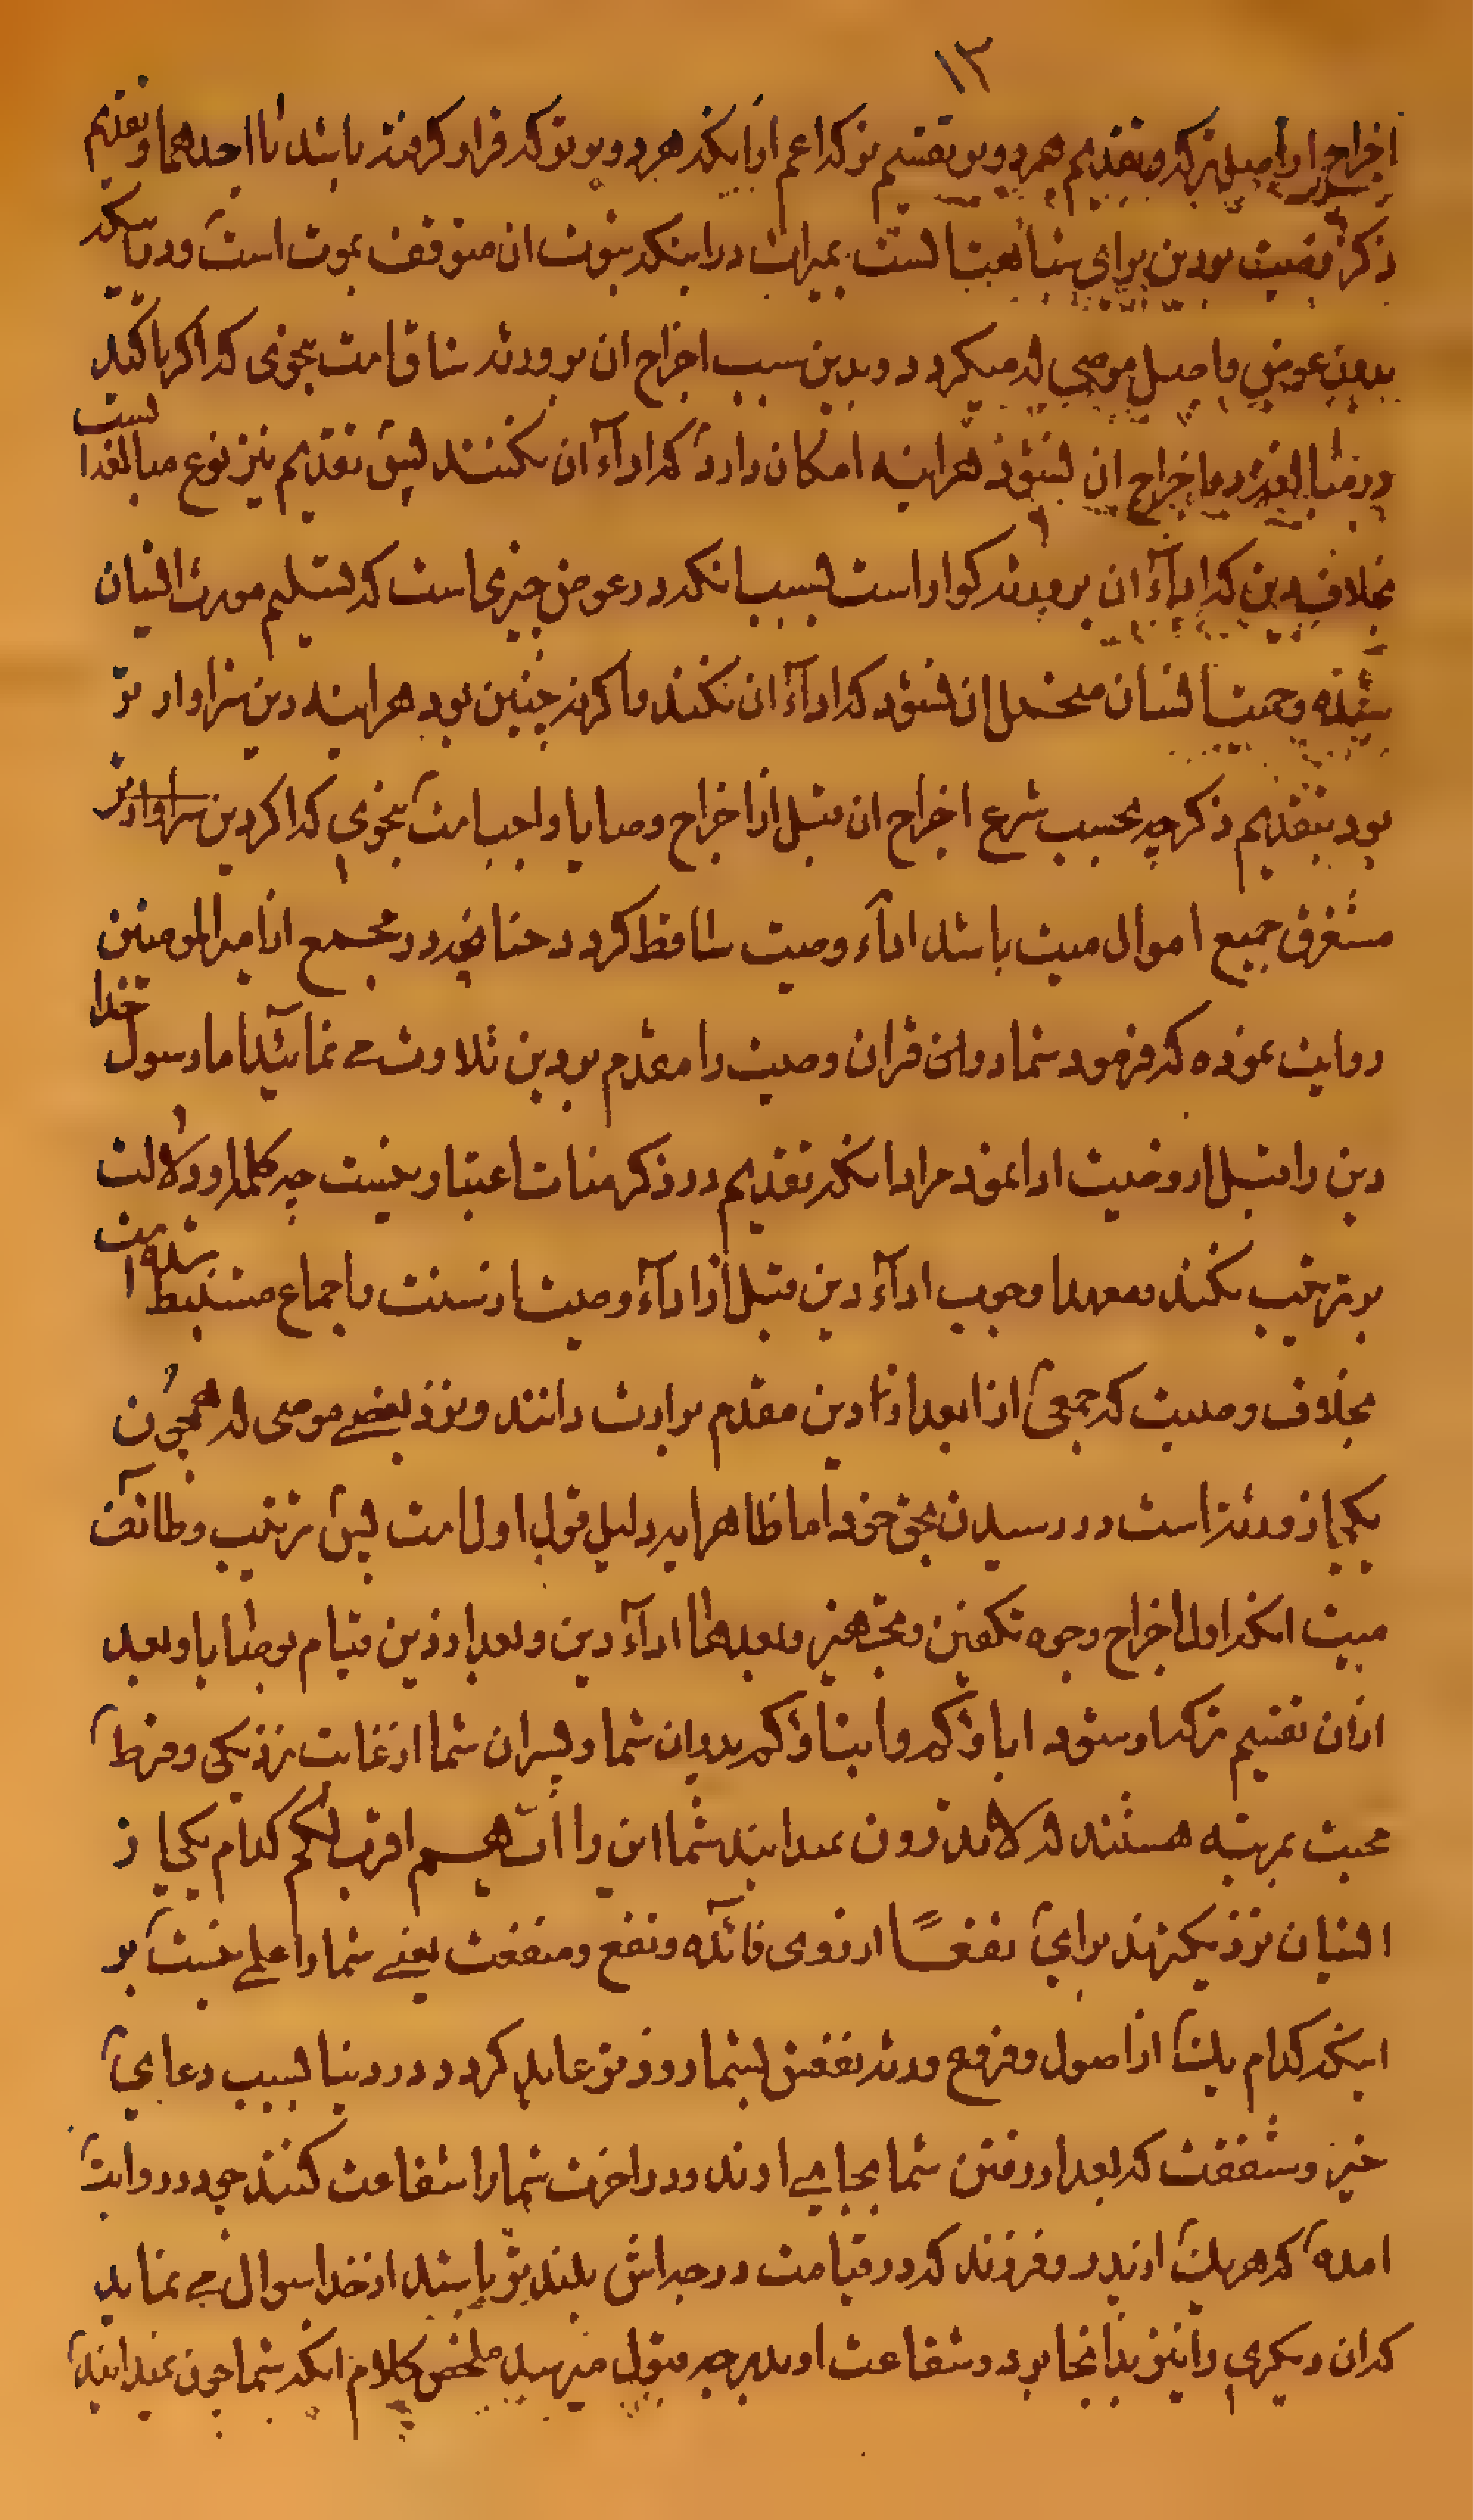 ١٣
اخراج از اصل ترکه و تقدیم هر دو بر تقسیم ترکه اعم از اینکه هر دو بر ترکه قرار گرفته باشد یا احدهما و تقدیم
ذکر وصیت بر دین برای مشابهت است بمیراث در اینکه ثبوت ان متوقف بموت است و دیگر اینکه
بدون عوض واصل موصی له میکردد و بدین سبب اخراج ان بر ورثه شاق است بنحوی که اکر تاکید
و مبالغه در اخراج ان نشود هراینه امکان دارد که اداء ان نکنند پس تقدیم نیز نوع مبالغه است
بخلاف دین که اداء ان بر ورثه کوارا است بسبب انکه در عوض چیزی است که تسلیم مورث ایشان
شده و حمیت انسان متحمل ان نشود که اداء ان نکند و اکر نه چنین بود هراینه دین سزاوار تر
بود بتقدیم ذکر چه بحسب شرع اخراج ان قبل از اخراج وصایا واجب است بنحوی که اکر دین
مستغرق جمیع اموال میت باشد اداء وصیت ساقط کردد چنانچه در مجمع از امیرالمومنین
روایت نموده که فرمود شما در این قران وصیت را مقدم بر دین تلاوت می نمائید اما رسول خدا
دین را قبل از وصیت ادا نمود مراد انکه تقدیم در ذکر منات اعتبار نیست چه کلمه او دلالت
بر ترتیب نکند و معهذا وجوب اداء دین قبل از اداء وصیت از سنت و اجماع مستنبط شده است
بخلاف وصیت که جمعی انرا بعد از دین مقدم بر ارث دانند و نزد بعضی موصی له همچون
یکی از ورثه است در رسیدن بحق خود اما ظاهر ایه دلیل قول اول است پس ترتیب وظائف
میت انکه اول اخراج وجوه تکفین و تجهیز و بعدهما اداء دین و بعد از دین قیام بوصایا و بعد
از ان تقسیم ترکه او شود اباؤکم و ابناؤکم پدران شما و پسران شما از غایت نزدیکی و فرط
محبت بمرتبه هستند که لا تدرون نمیدانید شما این را ایهم اقرب لکم کدام یکی از
ایشان نزدیکترند برای نفعًا از روی فائده و نفع و منفعت یعنی شما را علمی نیست بر
اینکه کدام یک از اصول و فروع ورثه نفعش بشما زود تر عاید کردد در دنیا بسبب دعای
خیر و شفقت که بعد از رفتن شما بجا می اورند و در اخرت شما را شفاعت کنند چه در روایت
امده که هر یک از پدر و فرزند که در قیامت درجه اش بلند تر باشد از خدا سوال می نماید
که ان دیکری را نیز بدانجا برد و شفاعت او بدرجه قبول میرسد ملخص کلام انکه شما چون نمیدانید